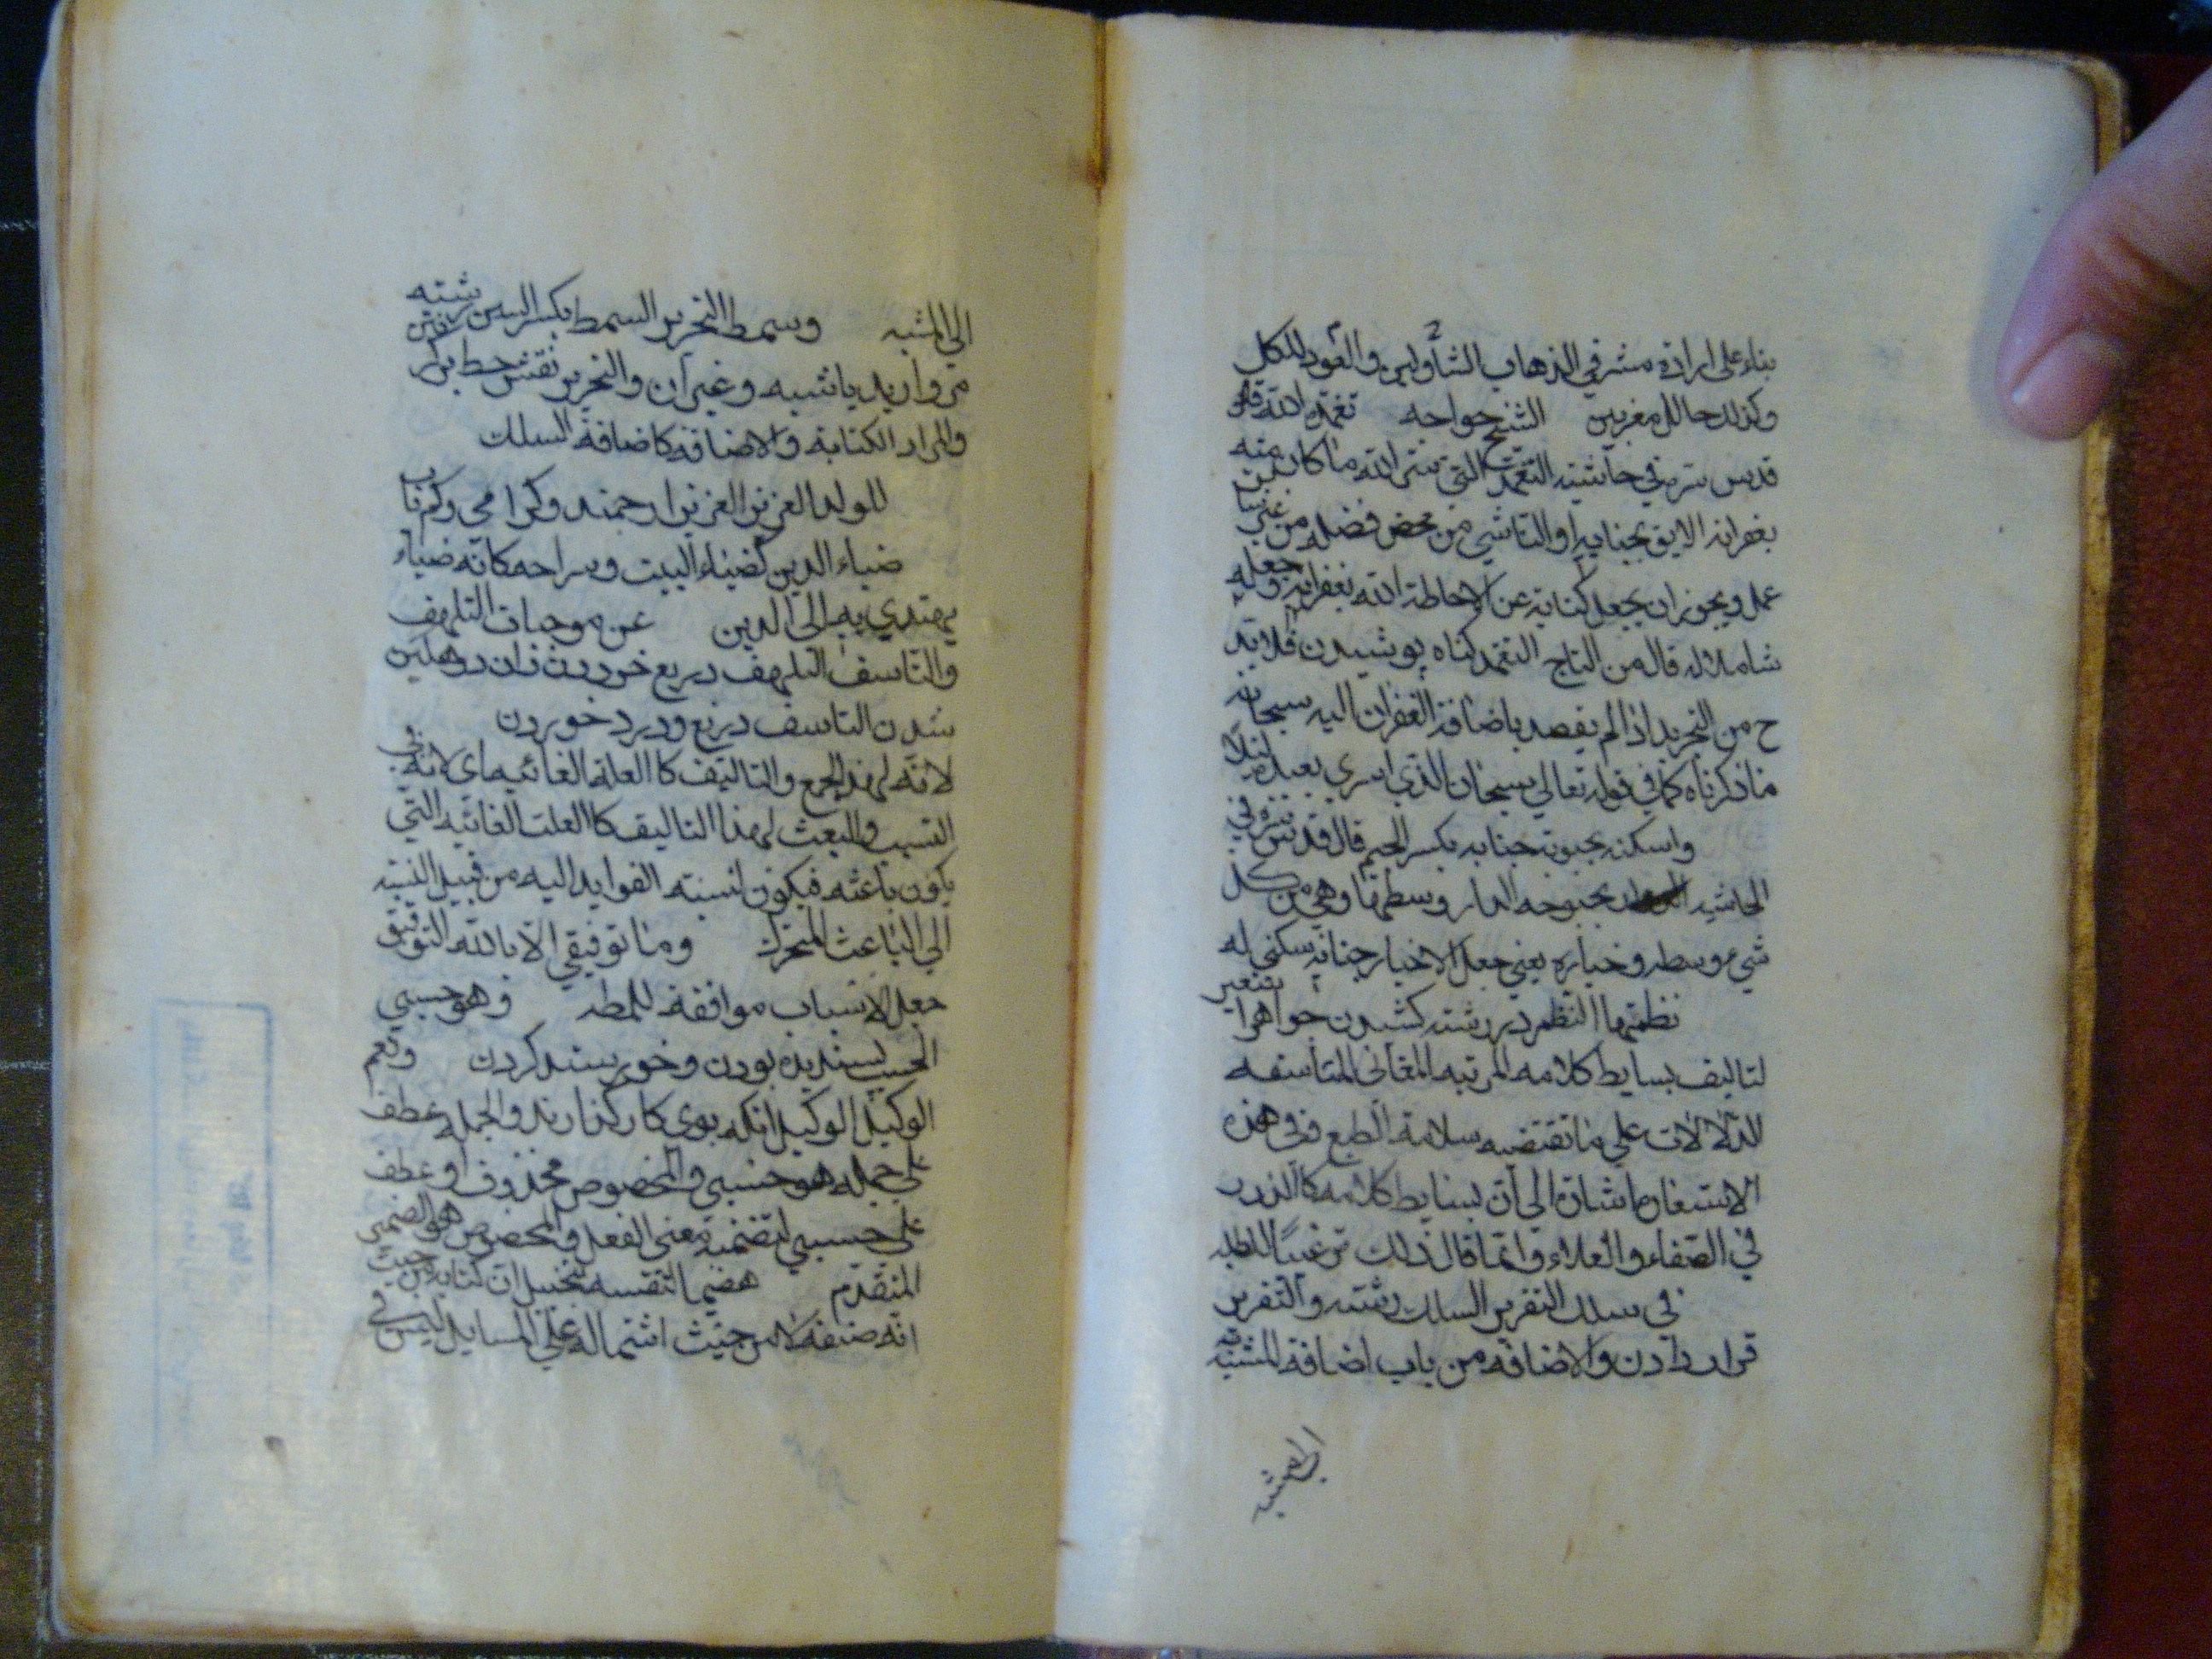 بناء على ارادة مشرقي الذهاب الشأ وليس والعود للكل
وكذلك حال المغربين الشيخ حواحه تغمده الله قال
قدس سره في حاشيته التغمد التي ستر الله ما كان منه
بغفرانه الايق بجنابه او الناشي من محض فضله من غير
عمل ويجوز ان يجعل كناية عن الاحاطة الله بغفرانه وجعله
شاملا له قال من التاج التغمد كناه پوشيدن فلا بد
ح من التجريد اذا لم يقصد باضافة الغفران اليه سبحانه
ما ذكرناه كما في قوله تعالى سبحان الذي اسرى بعبده ليلا
واسكنه بحبوبة جنابه بكسر الجيم قال قدس سره في
الحاشيه بحبوحه الدار وسطها وهي من كل
شيء وسطه وخياره يعني جعل الاخيار جنانه سكنى له
نظمتها النظم در رشته كشيدن جواهر
لتاليف بسايط كلامه المرتبه المعاني المتناسقه
الدلالات على ما تقتضيه سلامة الطبع وفي هذه
الاستعارة اشارة الى ان بسايط كلامه كالدرر
في الصفاء والعلاء وانما قال ذلك ترغيبا للطلبه
في سلك التقرير السلك رشته والتقرير
قرار دادن والاضافة من باب اضافة المشبه
الى المشبه
الى المشبه وسمط التحرير السمط بكسر السين رشته
مرواريد يا شبه وغير آن والتحرير نقش خط
والمراد الكتابة والاضافة كاضافة السلك
للولد العزيز العزيز ارجمند وكرامي وكم ياب
ضياء الدين كضياء البيت وسراجه كانه ضياء
يهتدي به الى الدين عن موجبات التلهف
والتاسف التلهف دريغ خوردن
شدن التاسف دريغ ودرد خوردن
لانه لهذا الجمع والتاليف كالعلة الغائيه اي لانه في
التسبب والبعث لهذا التاليف كا العلت الغائيه التي
يكون باعثه فيكون نسبته الفوايد اليه من قبيل النسبة
الى الباعث المحرك وما توفيقي الا بالله التوفيق
جعل الاسباب موافقة للمطلب وهو حسبي
الحسب بسنديده بودن وخور بسند كردن ونعم
الوكيل الوكيل انكه بوى كار كذارند والجمله عطف
على جمله هو حسبي والمخصوص محذوف او عطف
على حسبي لتضمنه معنى الفعل والمخصوص هو الضمير
المتقدم هضما لنفسه بتخييل ان كتابه من حيث
انه صنفه لا من حيث اشتماله على المسايل ليس في